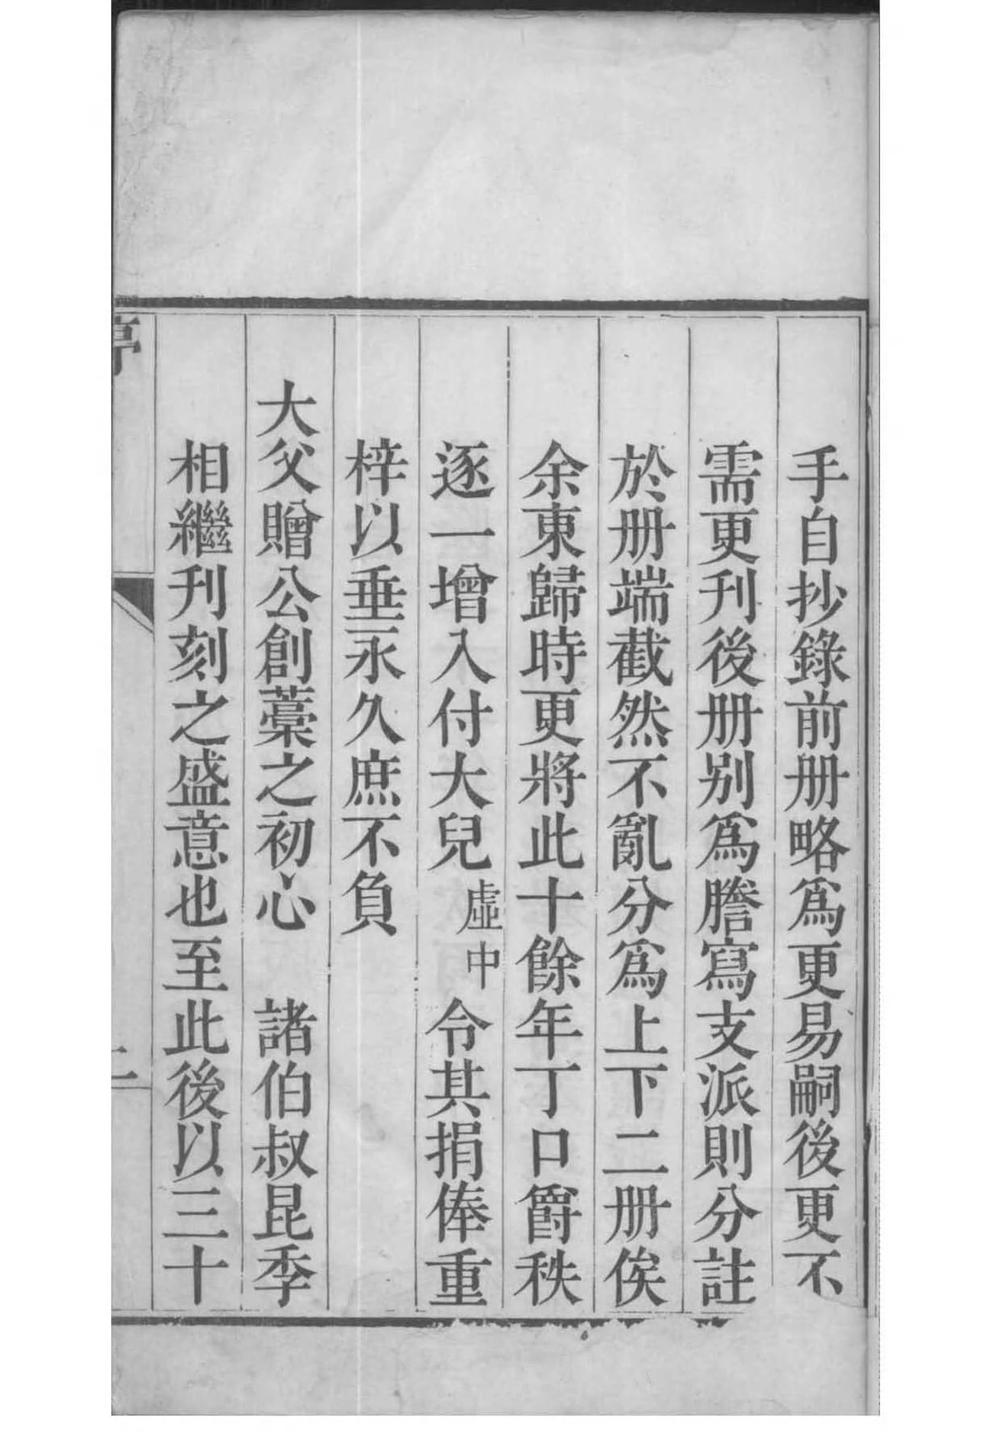 手自抄錄前册略爲更易嗣後更不
需更刋後册别爲謄寫支派則分註
於册端截然不亂分爲上下二册俟
余東歸時更將此十餘年丁口爵秩
逐一增入付大兒虛中令其捐俸重
梓以垂永久庶不負
大父贈公創藁之初心　諸伯叔昆季
相繼刋刻之盛意也至此後以三十
序
二